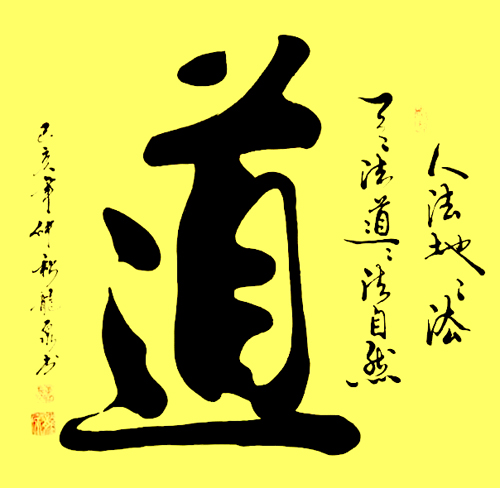 人法地〻法
天〻法道〻法自然
道
己亥年仲秋龍泉书